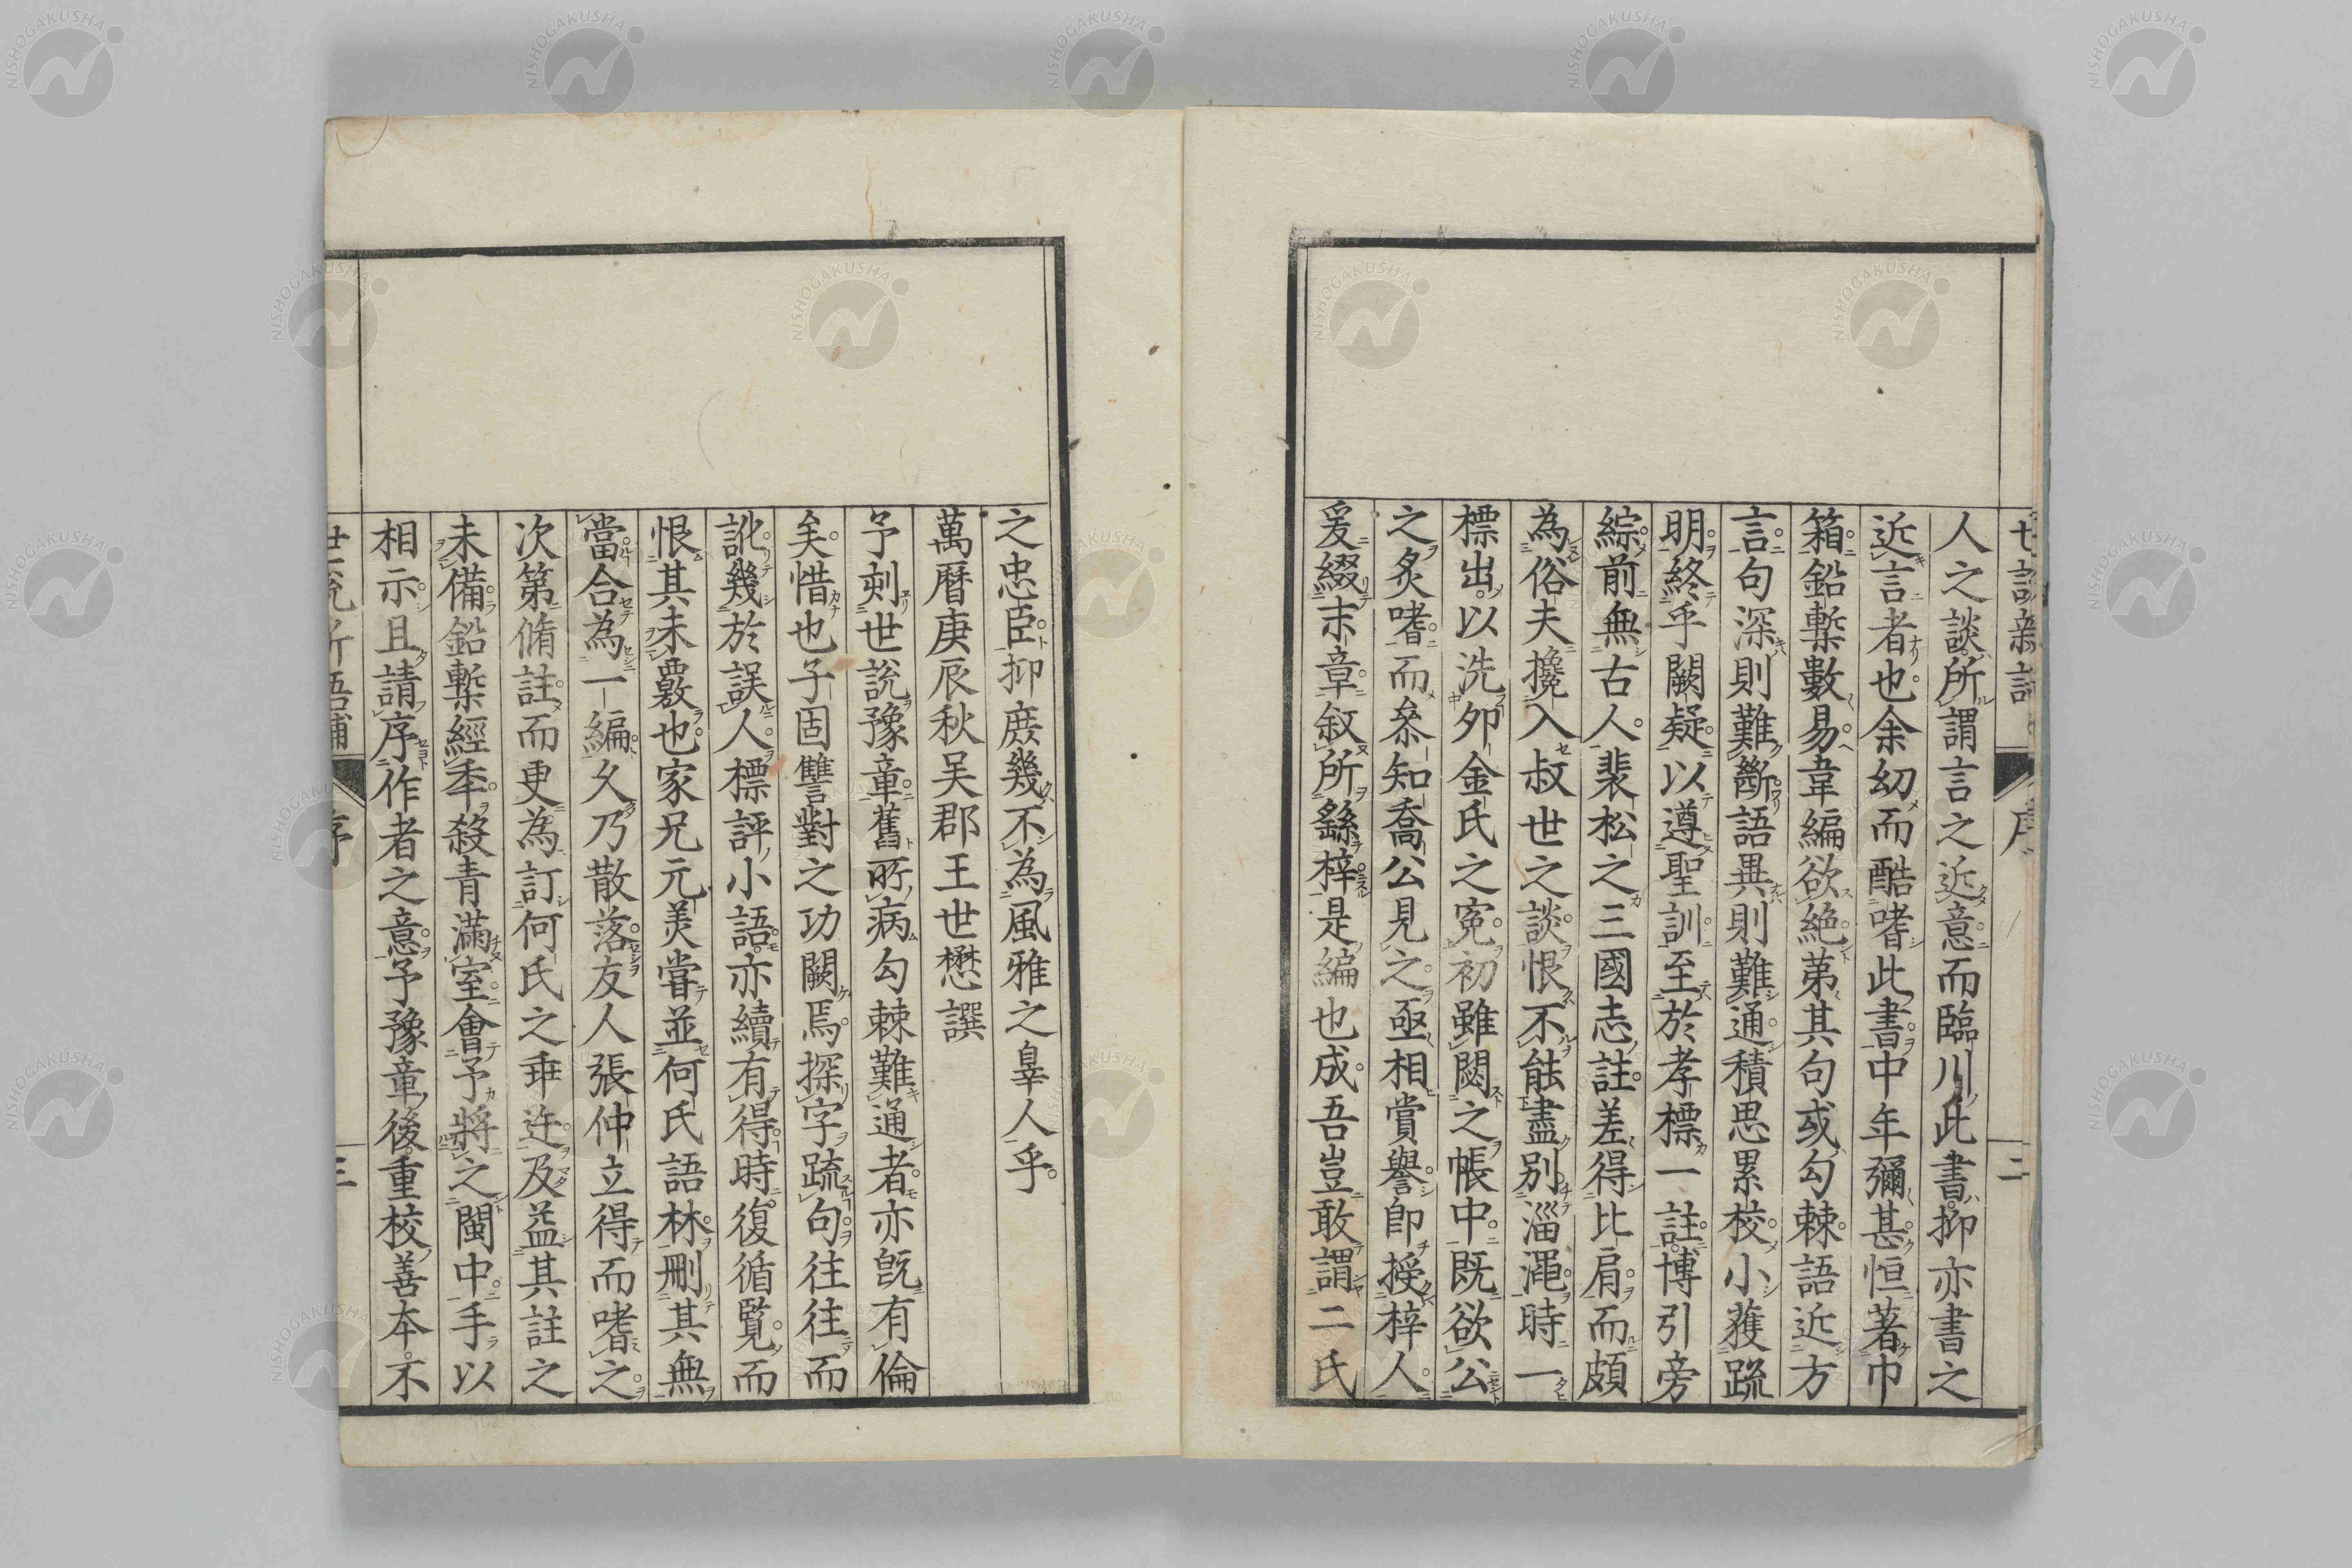 人之談所謂言之近意而臨川此書抑亦書之
近言者也余幼而酷嗜此書中年彌甚恒著巾
箱鉛槧數易韋編欲絶第其句或勾棘語近方
言句深則難斷語異則難通積思累校小獲疏
明終乎闕疑以遵聖訓至於孝標一註博引旁
綜前無古人裴松之三國志註差得比肩而頗
為俗夫攙入叔世之談恨不能盡別淄澠時一
標出以洗夘金氏之寃初雖閟之帳中既欲公
之炙嗜而叅知喬公見之亟相賞譽即授梓人
爰綴末章叙所繇梓是編也成吾豈敢謂二氏
之忠臣抑庶幾不為風雅之辠人乎
萬曆庚辰秋吴郡王世懋譔
予刻世說豫章舊所病勾棘難通者亦旣有倫
矣惜也子固讐對之功闕焉探字疏句往往而
訛幾於誤人標評小語亦續有得時復循覽而
恨其未覈也家兄元美嘗並何氏語林刪其無
當合為一編久乃散落友人張仲立得而嗜之
次第脩註而更為訂何氏之乖迕及益其註之
未備鉛槧經秊殺青滿室會予將之閩中手以
相示且請序作者之意予豫章後重校善本不
世説新語補
序
三
二
NISHOGAKUSHA